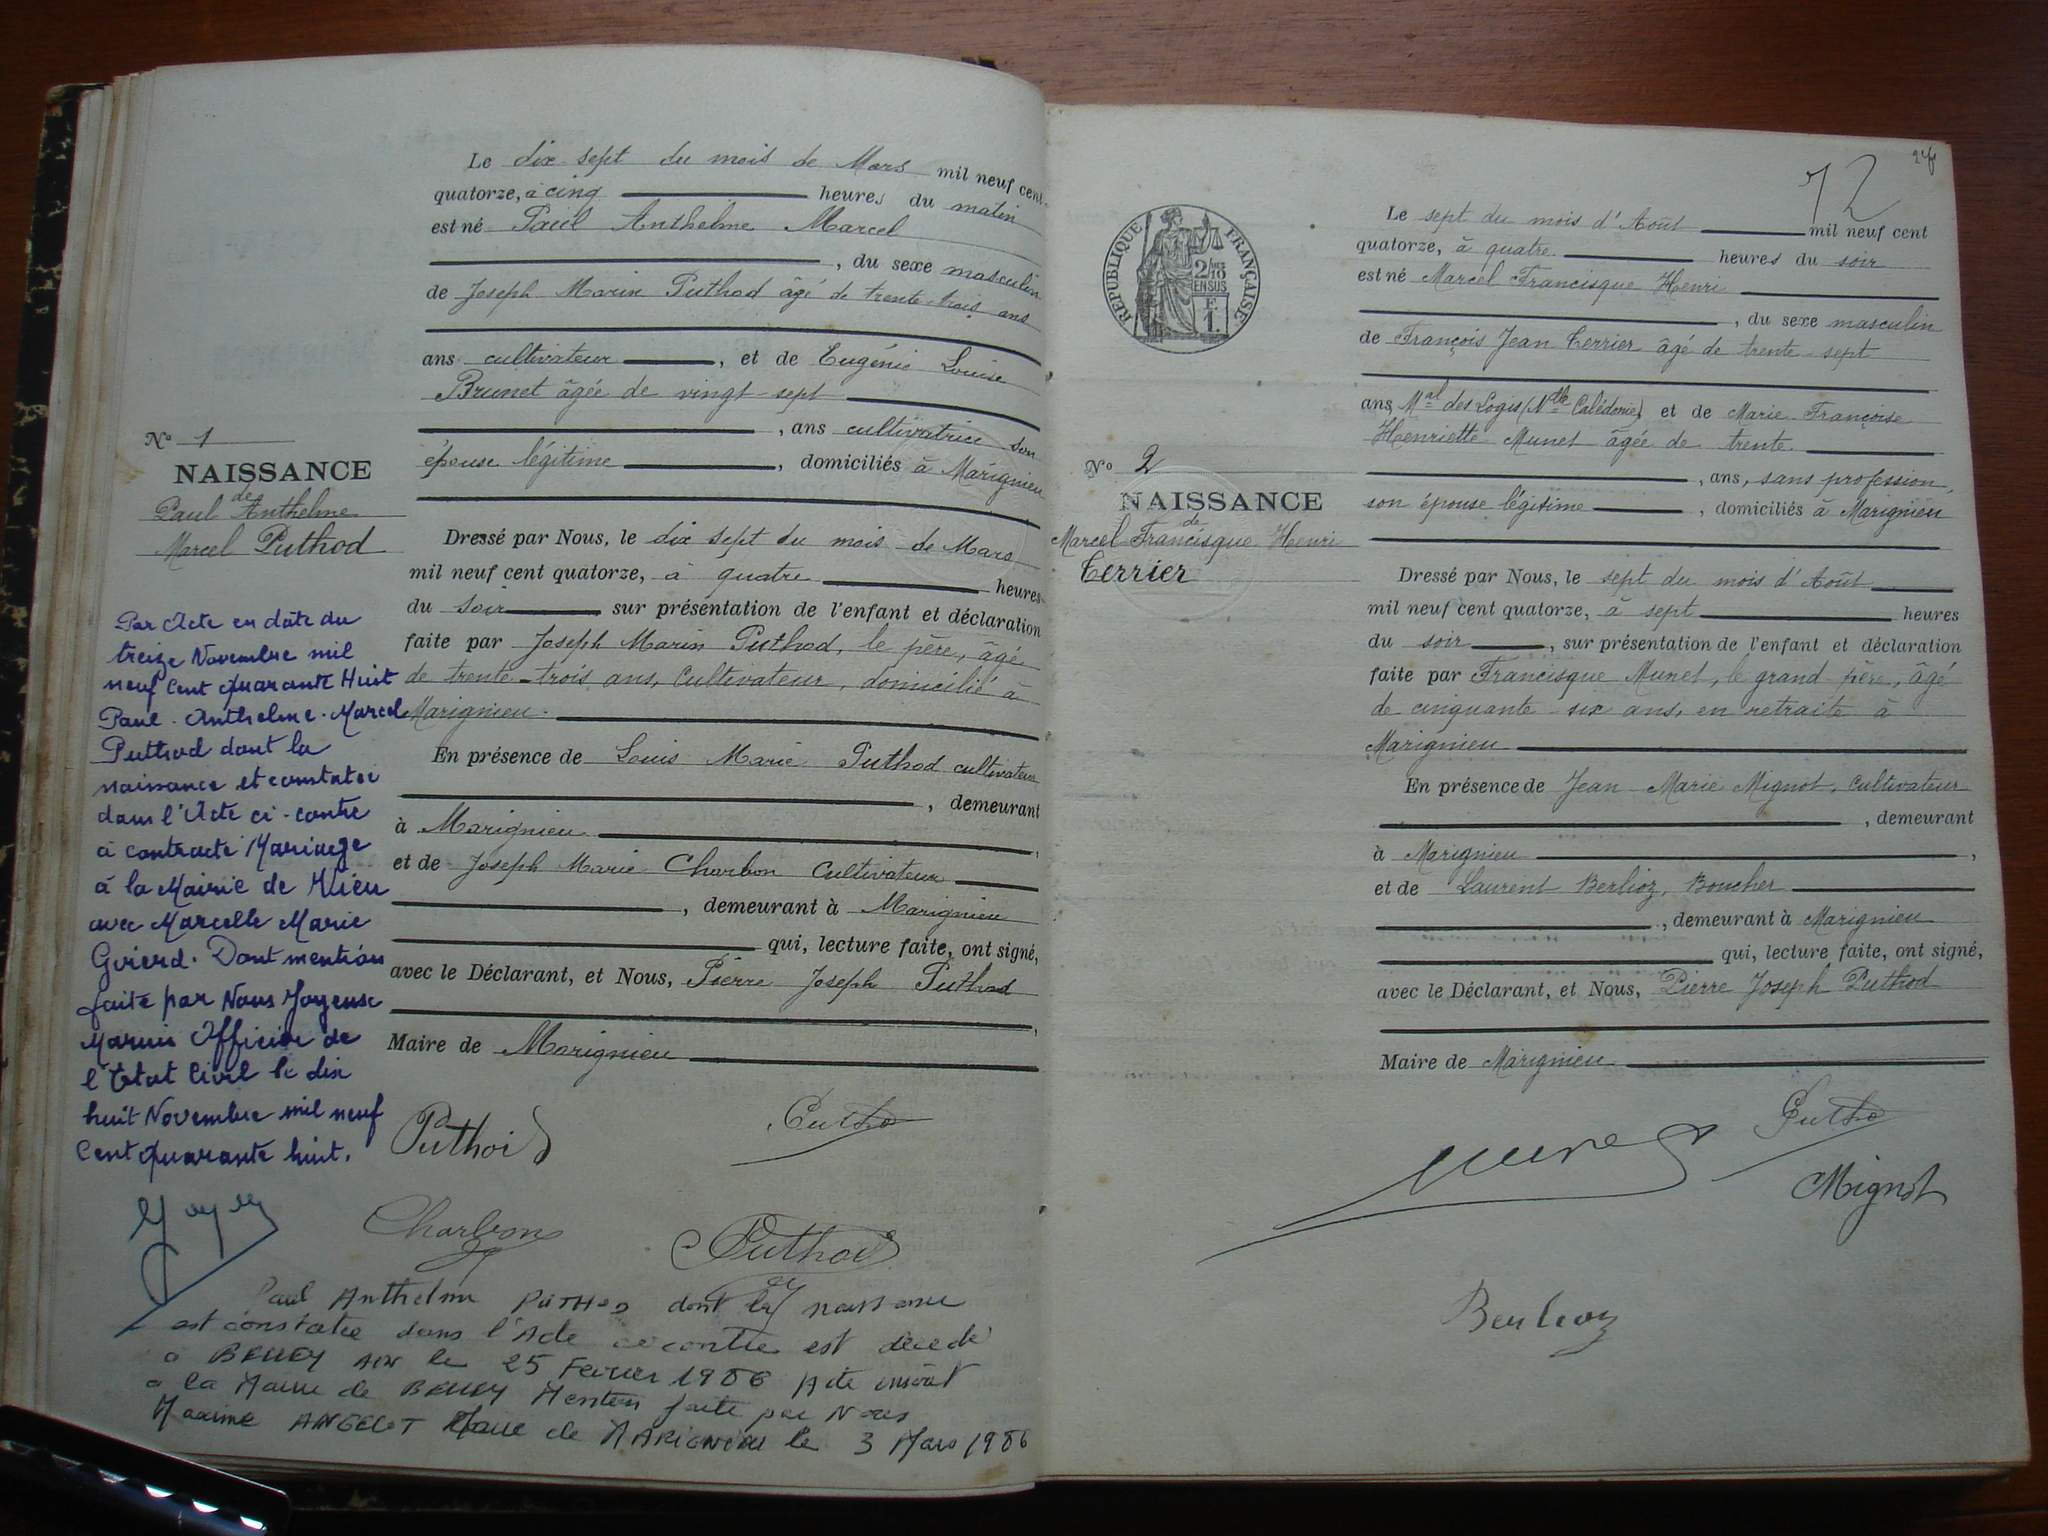 Le dix sept du mois de Mars mil neuf cent
quatorze, à cinq heures du matin
est né Paul Anthelme Marcel
, du sexe masculin
de Joseph Marin Puthod âgé de trente-trois ans
ans cultivateur, et de Eugénie Louise
Brunet âgée de vingt-sept
, ans cultivatrice son
épouse légitime, domiciliés à Marignieu
Dressé par Nous, le dix sept du mois de Mars
mil neuf cent quatorze, à quatre heures
du soir sur présentation de l'enfant et déclaration
faite par Joseph Marin Puthod, le père, âgé
de trente-trois ans, Cultivateur, domicilié à
Marignieu.
En présence de Louis Marie Puthod cultivateur
, demeurant
à Marignieu,
et de Joseph Marie Charbon Cultivateur
, demeurant à Marignieu
qui, lecture faite, ont signé,
avec le Déclarant, et Nous, Pierre Joseph Puthod
,
Maire de Marignieu
Puthod
Putho
Charbon
Puthod
N° 1
NAISSANCE
de
Paul Anthelme
Marcel Puthod
Par Acte en date du
treize Novembre mil
neuf Cent Quarante Huit
Paul-Anthelme-Marcel
Puthod dont la
naissance et constatée
dans l'Acte ci-contre
à contracté Mariage
à la Mairie de
avec Marcelle Marie
Dont mention
faite par Nous Joyeuse
Marius Officier de
l'Etat Civil le dix
huit Novembre mil neuf
Cent Quarante huit.
Paul Anthelme PUTHOD dont la naissance
est constatée dans l'Acte ci contre est décédé
à BELLEY AIN le 25 Fevrier 1986 Acte inscrit
a la Mairie de BELLEY Mention faite par Nous
Maxime ANGELOT Maire de MARIGNIEU le 3 Mars 1986
72
RÉPUBLIQUE FRANÇAISE
2/10
EN SUS
F.
1.
N° 2
NAISSANCE
de
Marcel Francisque Henri
Terrier
Le sept du mois d'Août mil neuf cent
quatorze, à quatre heures du soir
est né Marcel Francisque Henri
, du sexe masculin
de François Jean Terrier âgé de trente-sept
ans, Mal des Logis (Nlle Calédonie) et de Marie Françoise
Henriette Munet âgée de trente
, ans, sans profession,
son épouse légitime, domiciliés à Marignieu
Dressé par Nous, le sept du mois d'Août
mil neuf cent quatorze, à sept heures
du soir, sur présentation de l'enfant et déclaration
faite par Francisque Munet, le grand-père, âgé
de cinquante-six ans, en retraite à
Marignieu
En présence de Jean Marie Mignot, Cultivateur
, demeurant
à Marignieu,
et de Laurent Berlioz, Boucher
, demeurant à Marignieu
qui, lecture faite, ont signé,
avec le Déclarant, et Nous, Pierre Joseph Puthod
Maire de Marignieu
Putho
Munet
Mignot
Berlioz